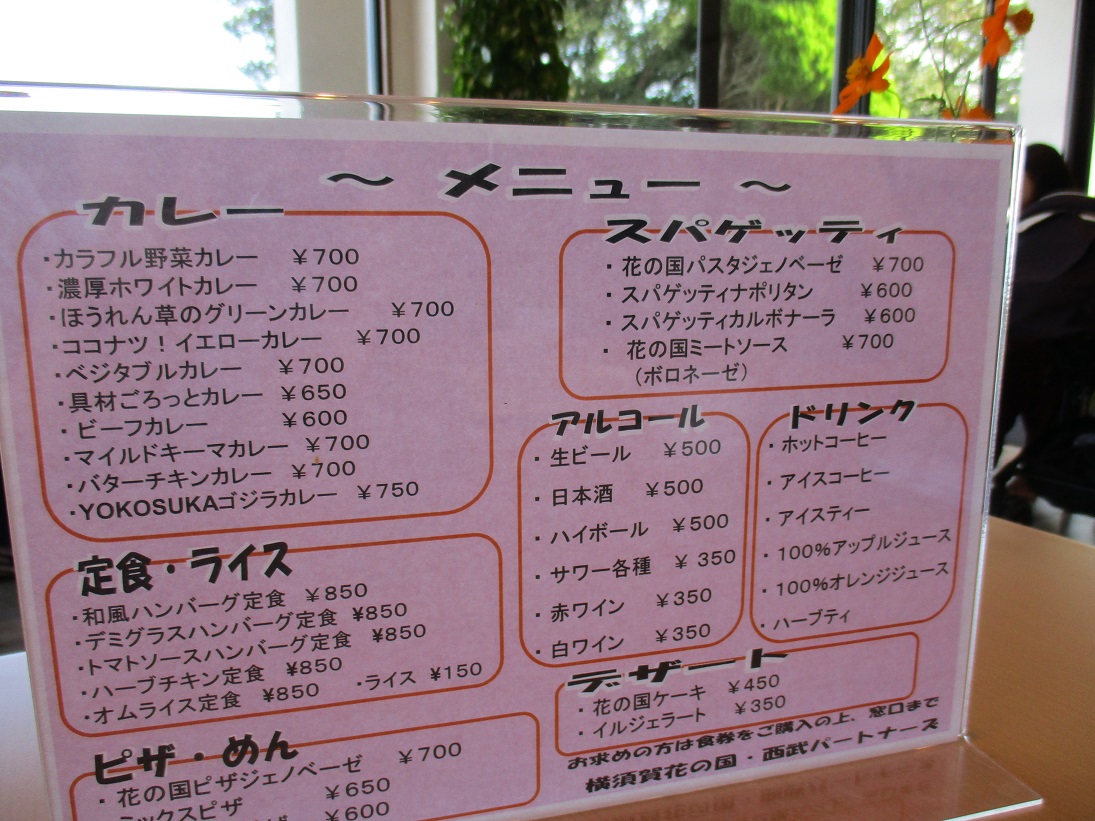 ～ メニュー ～
カレー
・カラフル野菜カレー ￥700
・濃厚ホワイトカレー ￥700
・ほうれん草のグリーンカレー ￥700
・ココナツ！イエローカレー ￥700
・ベジタブルカレー ￥700
・具材ごろっとカレー ￥650
・ビーフカレー ￥600
・マイルドキーマカレー ￥700
・バターチキンカレー ￥700
・YOKOSUKAゴジラカレー ￥750
定食・ライス
・和風ハンバーグ定食 ￥850
・デミグラスハンバーグ定食 ¥850
・トマトソースハンバーグ定食 ¥850
・ハーブチキン定食 ¥850
・オムライス定食 ¥850 ・ライス ¥150
ピザ・めん
・花の国ピザジェノベーゼ ￥700
ミックスピザ ￥650
￥600
スパゲッティ
・花の国パスタジェノベーゼ ￥700
・スパゲッティナポリタン ￥600
・スパゲッティカルボナーラ ￥600
・花の国ミートソース ￥700
（ボロネーゼ）
アルコール
・生ビール ￥500
・日本酒 ￥500
・ハイボール ￥500
・サワー各種 ￥350
・赤ワイン ￥350
・白ワイン ￥350
ドリンク
・ホットコーヒー
・アイスコーヒー
・アイスティー
・100％アップルジュース
・100％オレンジジュース
・ハーブティ
デザート
・花の国ケーキ ￥450
・イルジェラート ￥350
お求めの方は食券をご購入の上、窓口まで
横須賀花の国・西武パートナーズ